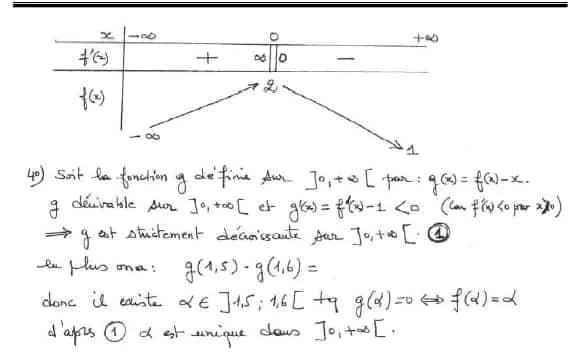 x -∞ 0 +∞
f'(x) + ∞ || 0 -
f(x) 2
-∞ 1
4°) Soit la fonction g définie sur ]0,+∞[ par : g(x) = f(x)-x.
g dérivable sur ]0,+∞[ et g'(x) = f'(x)-1 <0 (car f'(x)<0 pour x>0)
⇒ g est strictement décroissante sur ]0,+∞[. ①
en plus on a : g(1,5) · g(1,6) =
donc il existe α ∈ ]1,5 ; 1,6[ tq g(α)=0 ⇔ f(α)=α
d'aprs ① α est unique dans ]0,+∞[.